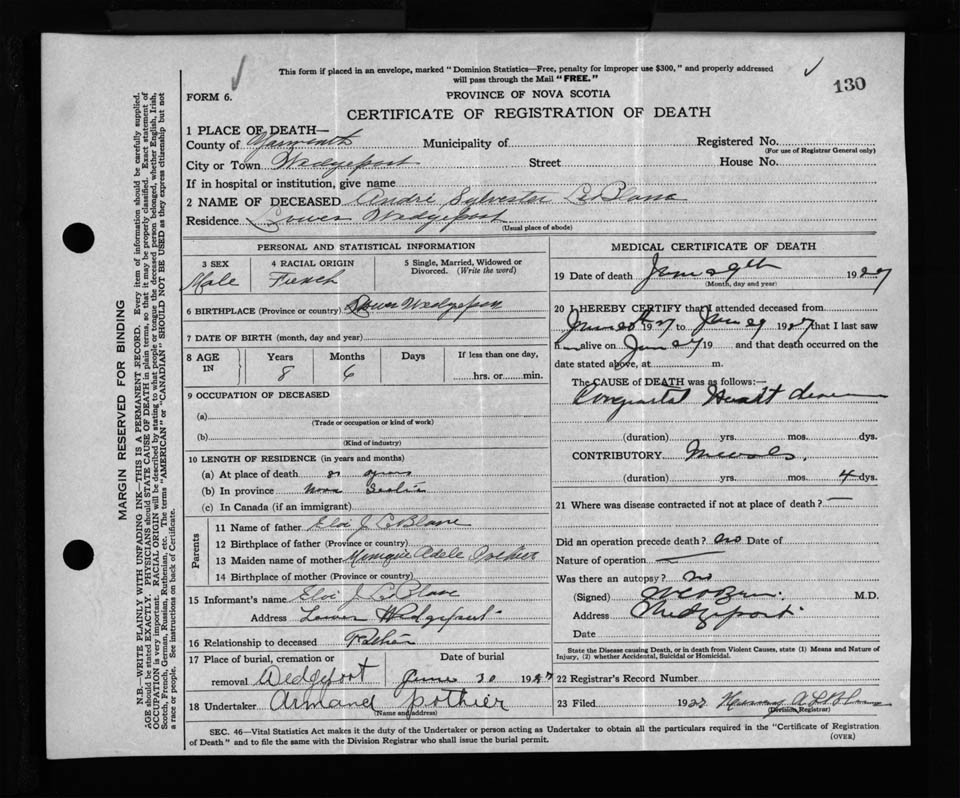 This form if placed in an envelope, marked "Dominion Statistics—Free, penalty for improper use $300," and properly addressed
will pass through the Mail "FREE."
130
FORM 6.
PROVINCE OF NOVA SCOTIA
CERTIFICATE OF REGISTRATION OF DEATH
1 PLACE OF DEATH—
County of Yarmouth Municipality of Registered No.
(For use of Registrar General only)
City or Town Wedgeport Street House No.
If in hospital or institution, give name
2 NAME OF DECEASED André Sylvester LeBlanc
Residence Lower Wedgeport
(Usual place of abode)
PERSONAL AND STATISTICAL INFORMATION
3 SEX 4 RACIAL ORIGIN 5 Single, Married, Widowed or
Divorced. (Write the word)
Male French
6 BIRTHPLACE (Province or country) Lower Wedgeport
7 DATE OF BIRTH (month, day and year)
8 AGE IN Years Months Days If less than one day,
8 6 hrs. or min.
9 OCCUPATION OF DECEASED
(a)
(Trade or occupation or kind of work)
(b)
(Kind of industry)
10 LENGTH OF RESIDENCE (in years and months)
(a) At place of death 8 years
(b) In province Nova Scotia
(c) In Canada (if an immigrant)
Parents
11 Name of father Eloi J LeBlanc
12 Birthplace of father (Province or country)
13 Maiden name of mother Monique Adele Pothier
14 Birthplace of mother (Province or country)
15 Informant's name Eloi J LeBlanc
Address Lower Wedgeport
16 Relationship to deceased Father
17 Place of burial, cremation or Date of burial
removal Wedgeport June 30 1927
18 Undertaker Armand Pothier
(Name and address)
MEDICAL CERTIFICATE OF DEATH
19 Date of death June 29th 1927
(Month, day and year)
20 I HEREBY CERTIFY that I attended deceased from
June 1927 to June 1927 that I last saw
h alive on June 27 19 and that death occurred on the
date stated above, at m.
The CAUSE of DEATH was as follows:—
Congenital Heart disease
(duration) yrs. mos. dys.
CONTRIBUTORY Measles.
(duration) yrs. mos. 4 dys.
21 Where was disease contracted if not at place of death? —
Did an operation precede death? no Date of
Nature of operation —
Was there an autopsy? no
(Signed) M.D.
Address Wedgeport
Date
State the Disease causing Death, or in death from Violent Causes, state (1) Means and Nature of
Injury, (2) whether Accidental, Suicidal or Homicidal.
22 Registrar's Record Number
23 Filed 1927 A LeBlanc
(Division Registrar)
SEC. 46—Vital Statistics Act makes it the duty of the Undertaker or person acting as Undertaker to obtain all the particulars required in the "Certificate of Registration
of Death" and to file the same with the Division Registrar who shall issue the burial permit.
(OVER)
MARGIN RESERVED FOR BINDING
N.B.—WRITE PLAINLY WITH UNFADING INK—THIS IS A PERMANENT RECORD. Every item of information should be carefully supplied.
AGE should be stated EXACTLY. PHYSICIANS should STATE CAUSE OF DEATH in plain terms, so that it may be properly classified. Exact statement of
OCCUPATION is very important. RACIAL ORIGIN will be described by stating to what people or tongue the deceased person belonged, whether English, Irish,
Scotch, French, German, Russian, Ruthenian, etc. The terms "AMERICAN" or "CANADIAN" SHOULD NOT BE USED as they express citizenship but not
a race or people. See instructions on back of Certificate.